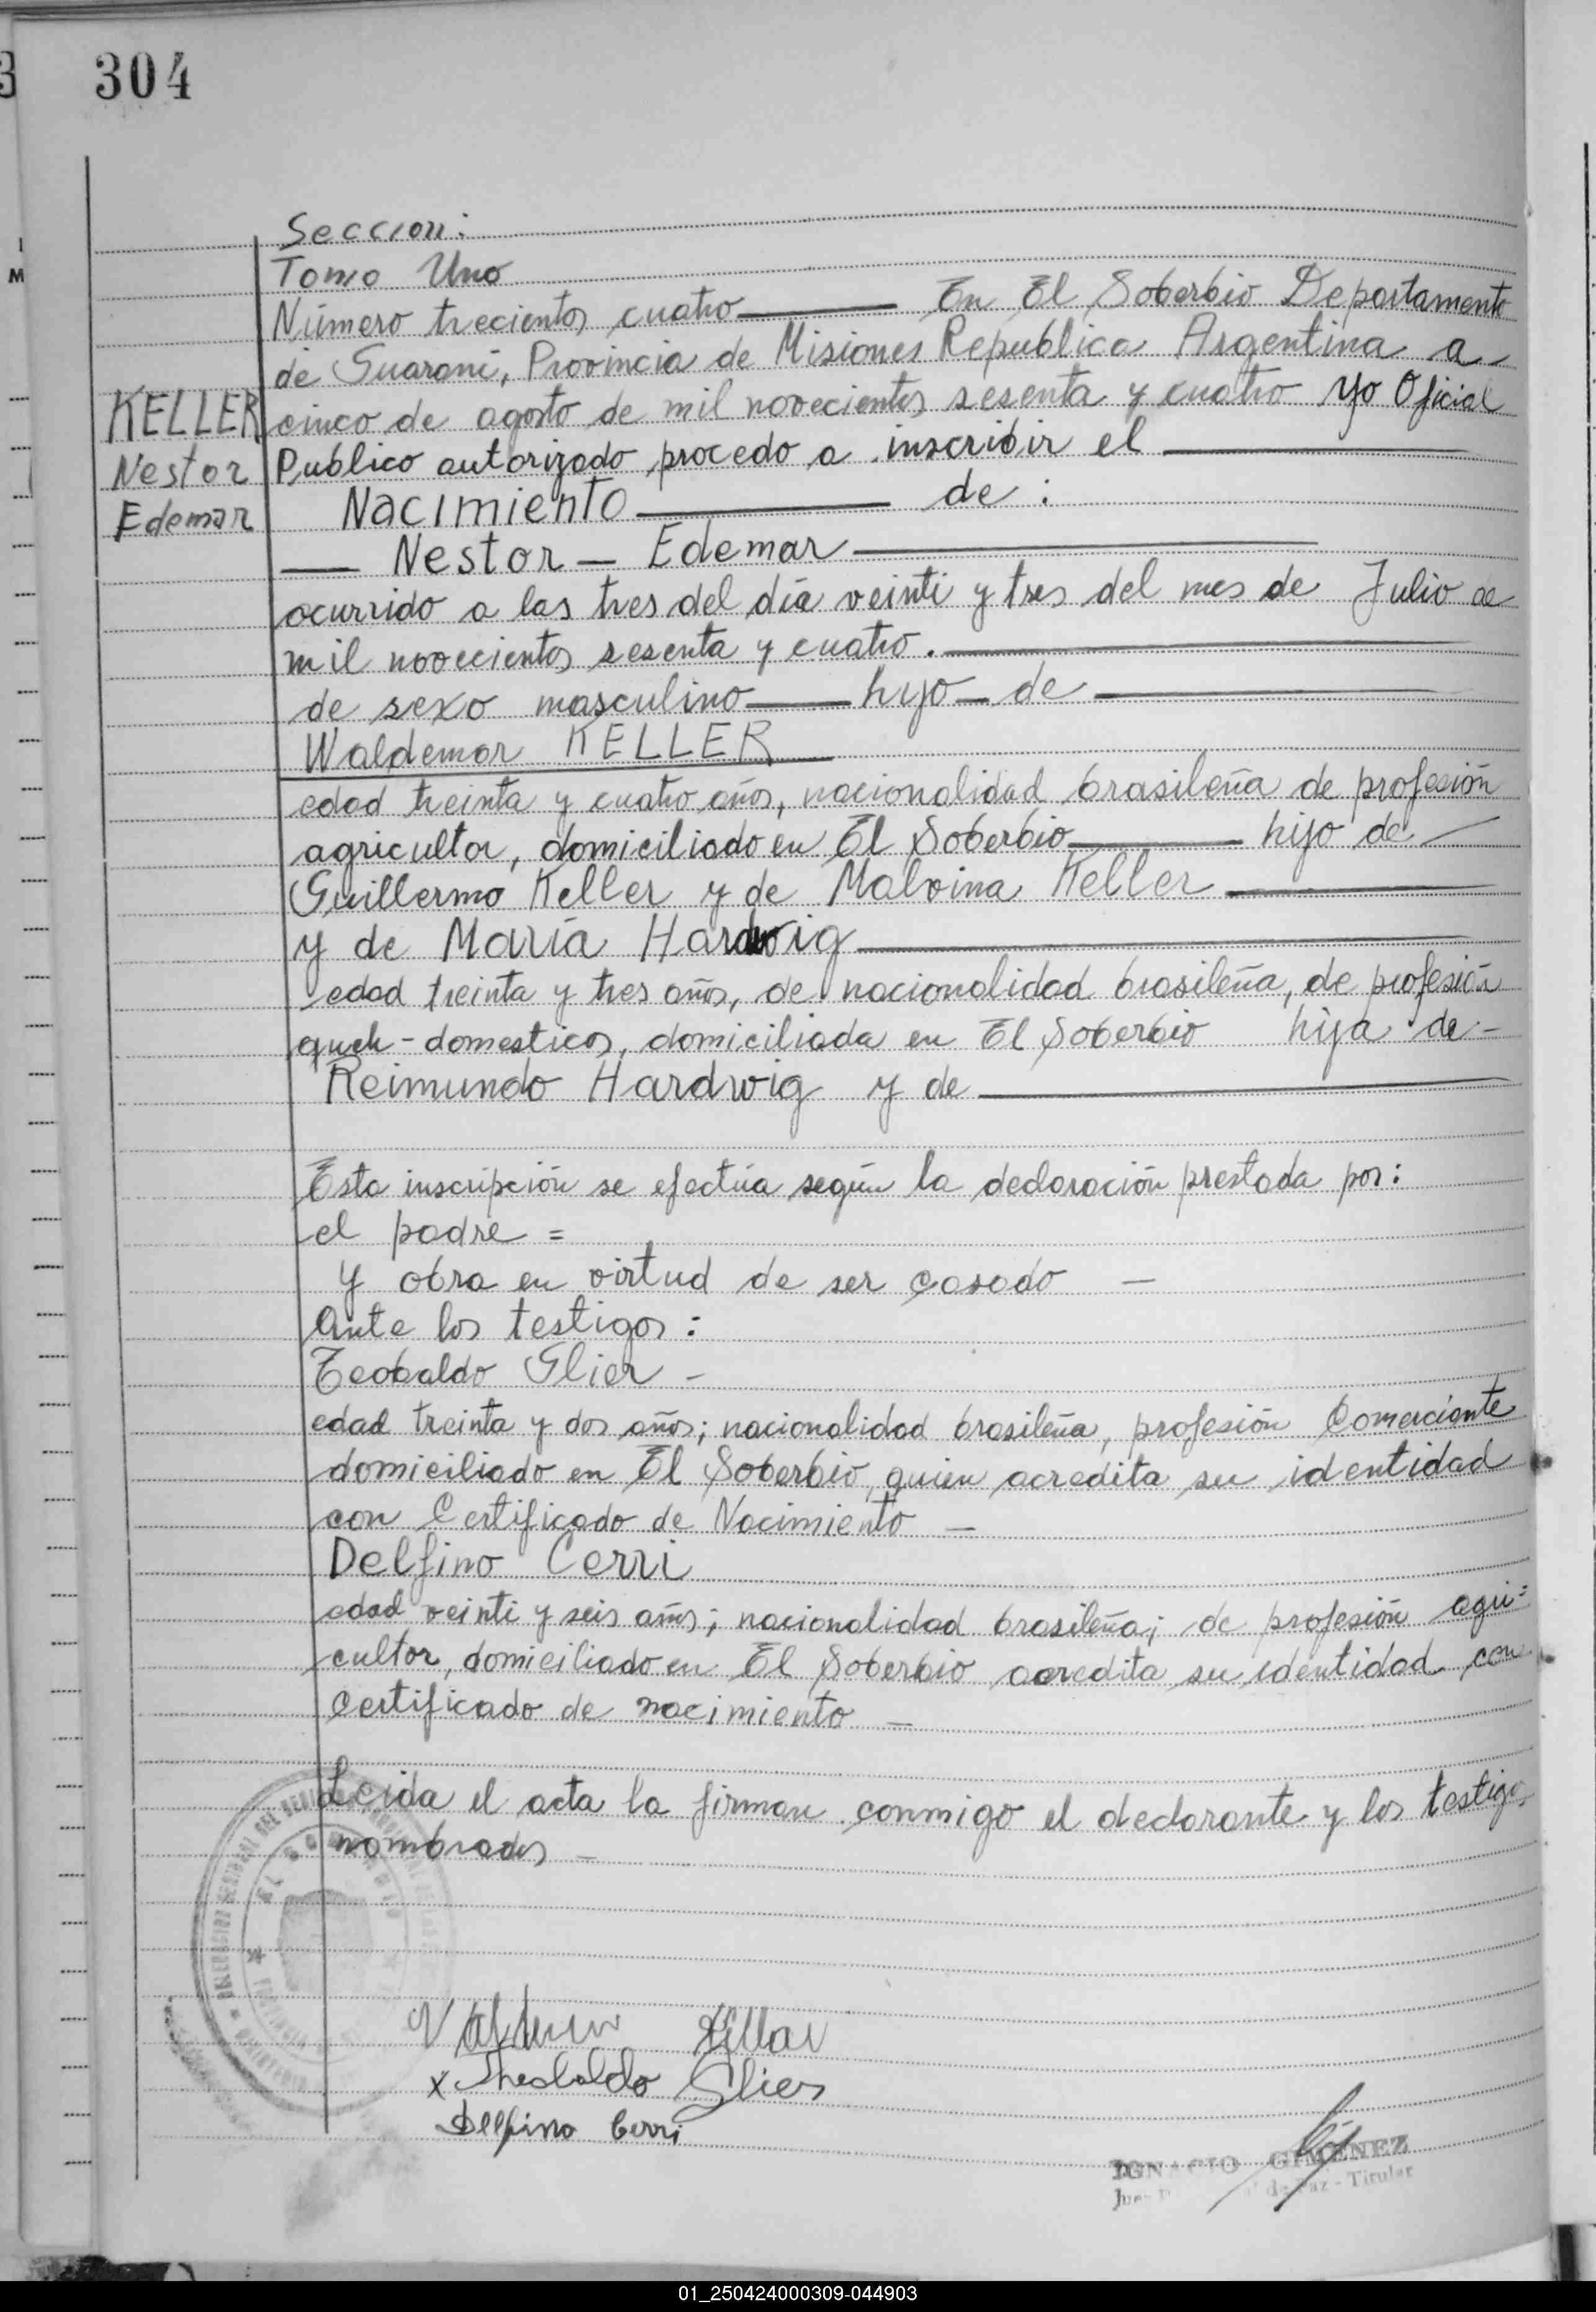 304
Seccion:
Tomo Uno
Número treciento, cuatro — En El Soberbio Departamento
de Guarani, Provincia de Misiones Republica Argentina a
cinco de agosto de mil novecientos sesenta y cuatro yo Oficial
Publico autorizado procedo a inscribir el —
KELLER
Nestor
Edemar
Nacimiento — de :
— Nestor — Edemar —
ocurrido a las tres del día veinti y tres del mes de Julio de
mil novecientos sesenta y cuatro. —
de sexo masculino — hijo — de —
Waldemar KELLER
edad treinta y cuatro años, nacionalidad brasileña de profesión
agricultor, domiciliado en El Soberbio — hijo de —
Guillermo Keller y de Malvina Keller —
y de María Hardwig —
edad treinta y tres años, de nacionalidad brasileña, de profesión
queh-domesticos, domiciliada en El Soberbio hija de -
Reimundo Hardwig y de —
Esta inscripción se efectúa según la declaración prestada por:
el padre =
y obra en virtud de ser casado —
Ante los testigos :
Teobaldo Glier -
edad treinta y dos años; nacionalidad brasileña, profesión Comerciante
domiciliado en El Soberbio, quien acredita su identidad
con Certificado de Nacimiento —
Delfino Cerri
edad veinti y seis años; nacionalidad brasileña; de profesión agri=
cultor, domiciliado en El Soberbio acredita su identidad con
Certificado de nacimiento —
Leida el acta la firman conmigo el declarante y los testigos
nombrados —
x Theobaldo Glier
Delfino Cerri
IGNACIO GIMENEZ
de Paz - Titular
01_250424000309-044903